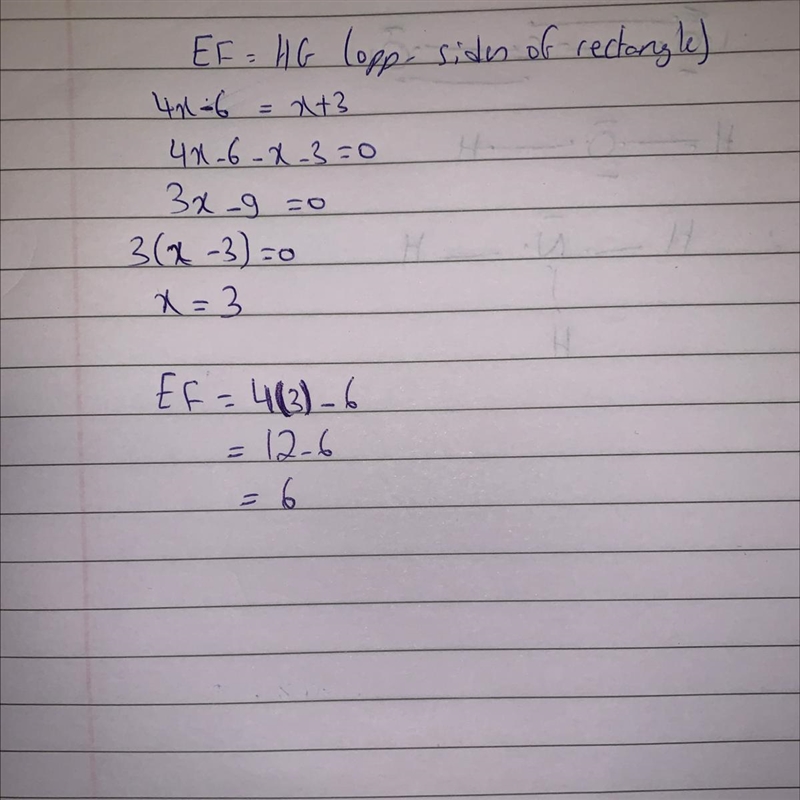 EF = HG (opp. sides of rectangle)
4x-6 = x+3
4x-6-x-3=0
3x-9=0
3(x-3)=0
x=3
EF = 4(3)-6
= 12-6
= 6